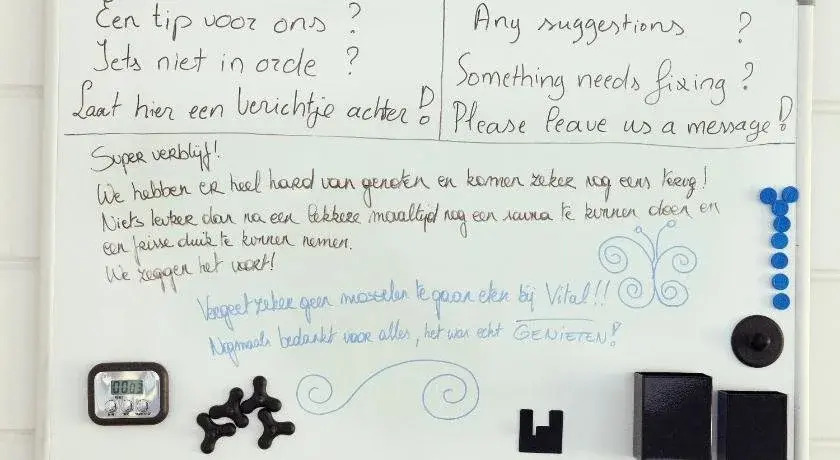 Een tip voor ons ?
Iets niet in orde ?
Laat hier een berichtje achter !
Any suggestions ?
Something needs fixing ?
Please leave us a message !
Super verblijf!
We hebben er heel hard van genoten en komen zeker nog eens terug!
Niets leuker dan na een lekkere maaltijd nog een sauna te kunnen doen en
een frisse duik te kunnen nemen.
We zeggen het voort!
Vergeet zeker geen mosselen te gaan eten bij Vital!!
Nogmaals bedankt voor alles, het was echt GENIETEN!